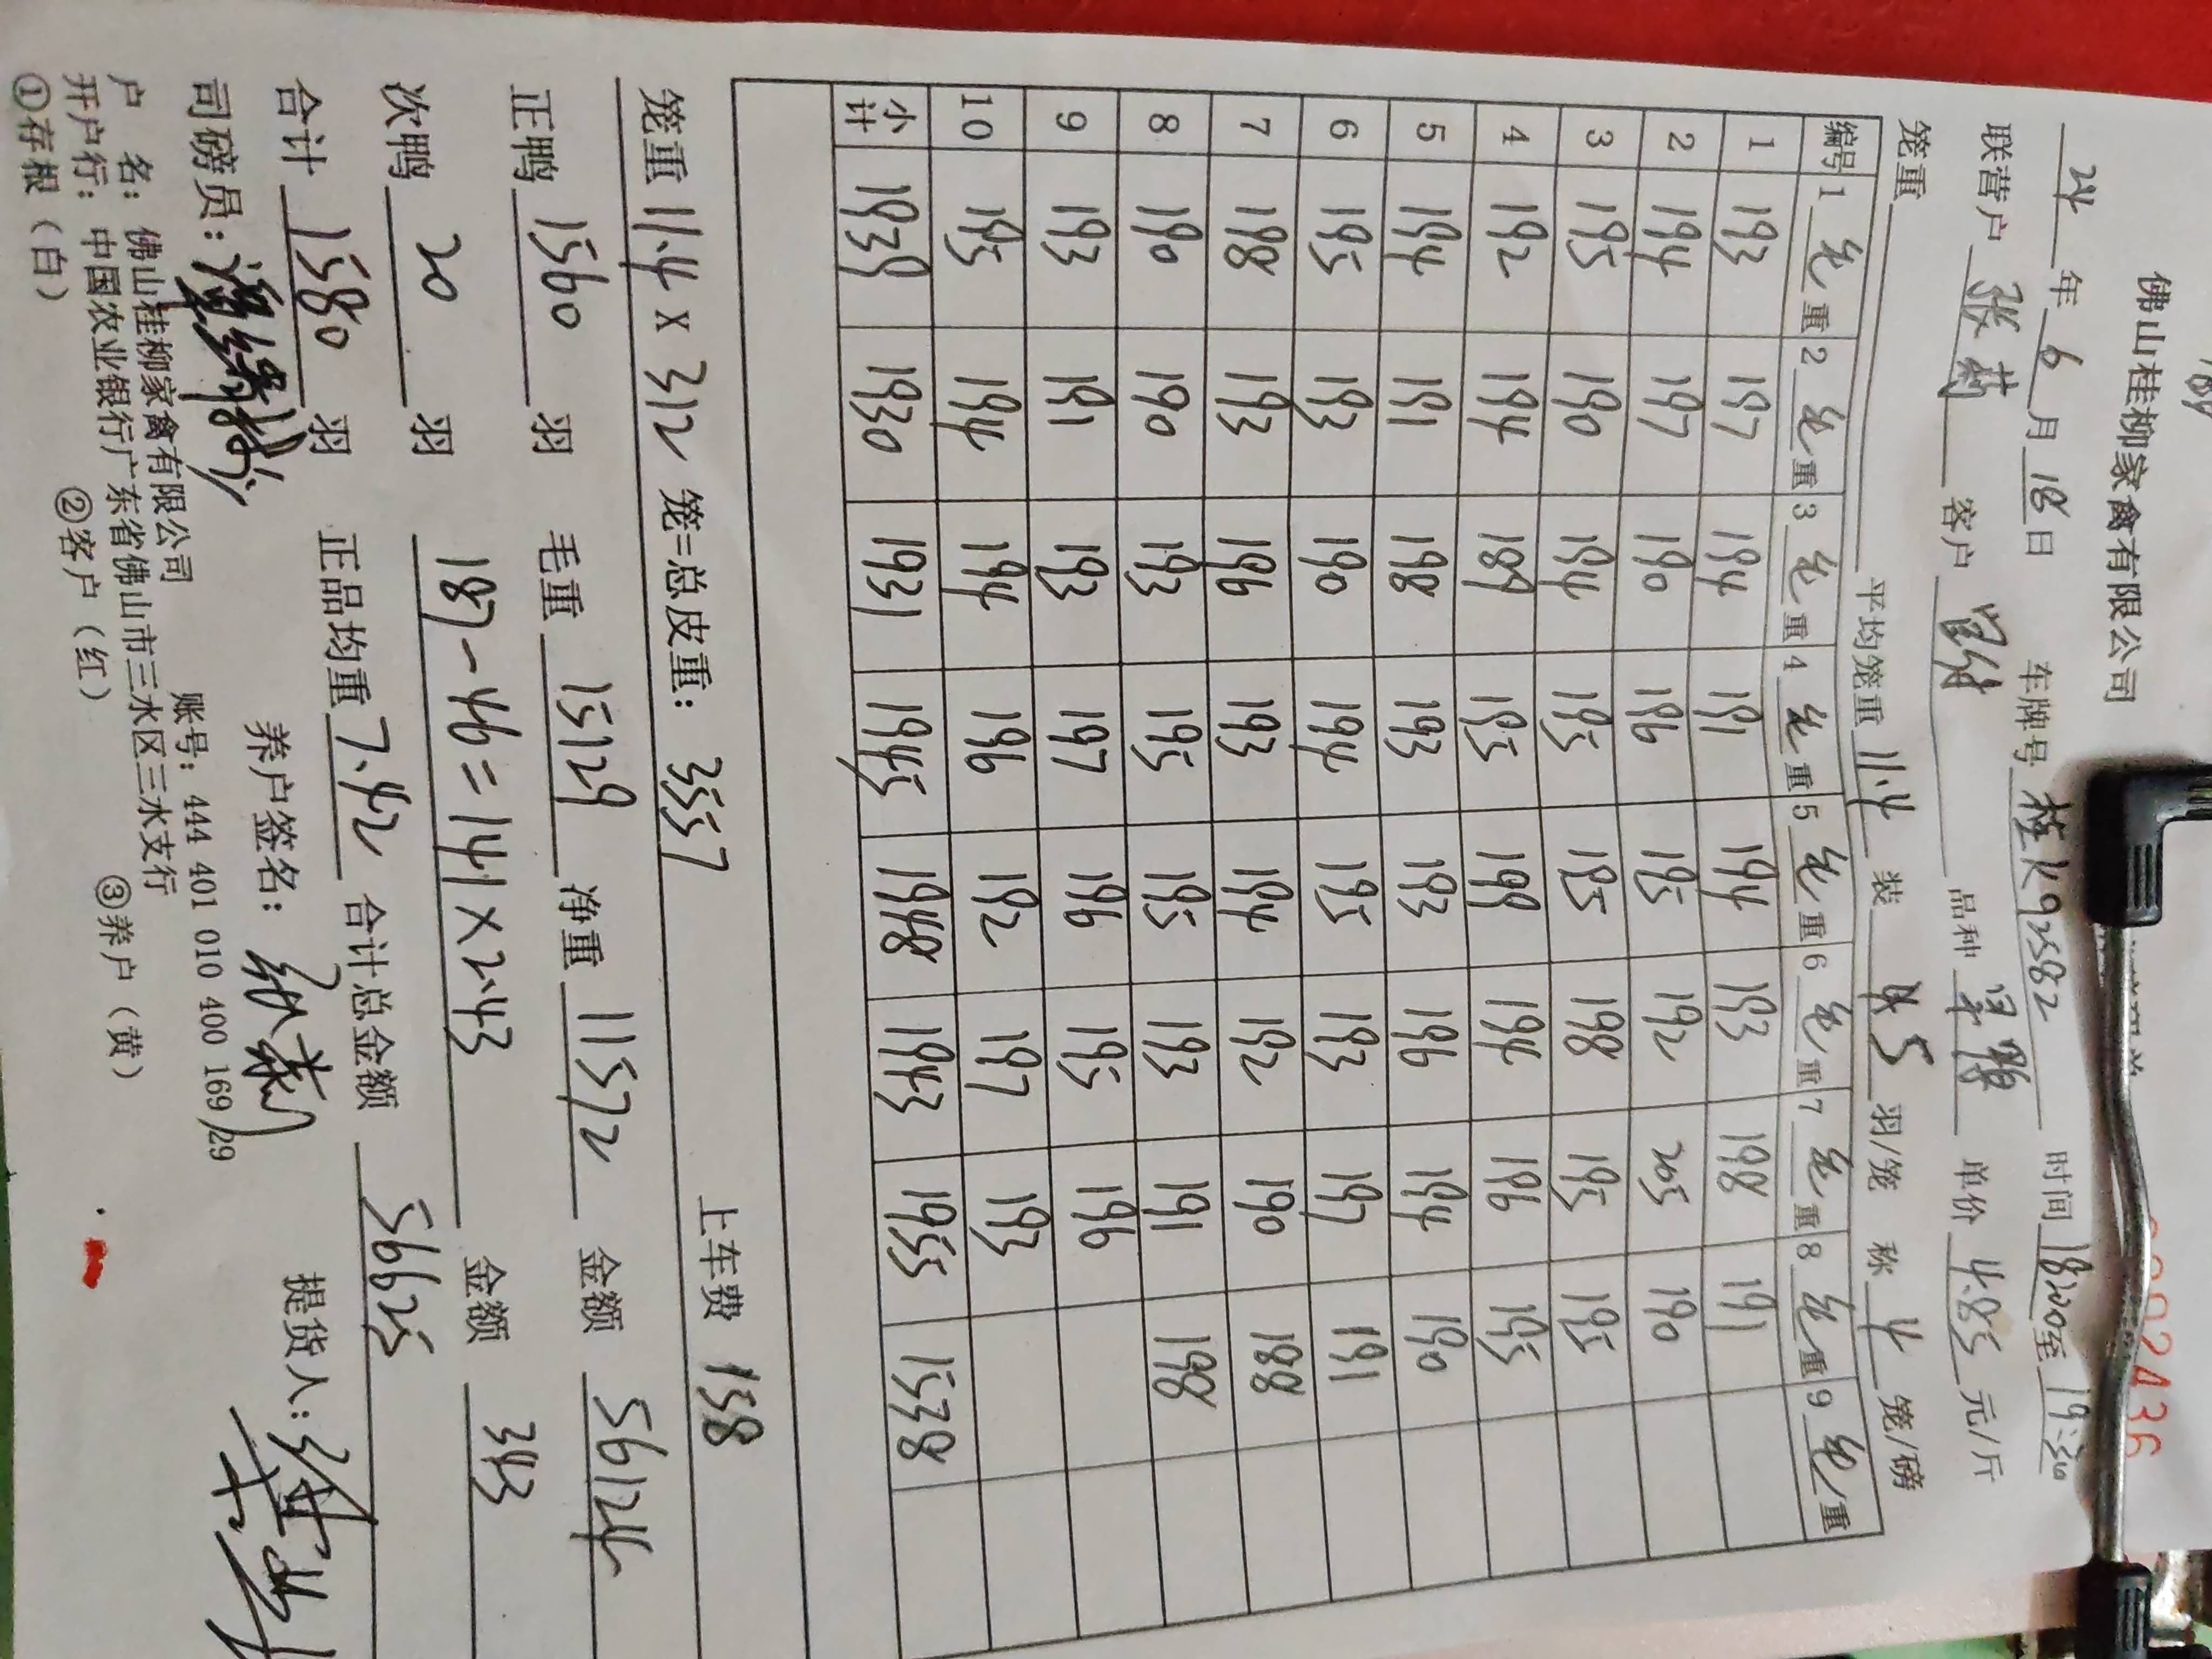 佛山桂柳家禽有限公司
24年6月18日 车牌号 桂K92582 时间 18:00至19:30
联营户 张 客户 品种 单价 4.85 元/斤
笼重 平均笼重 11.4 装 5 羽/笼 称 4 笼/磅
编号 1毛重 2毛重 3毛重 4毛重 5毛重 6毛重 7毛重 8毛重 9毛重
1 193 197 194 191 194 193 198 191
2 194 197 190 196 195 192 205 190
3 195 190 194 195 195 198 195 195
4 192 194 189 195 199 194 196 195
5 194 191 198 193 193 196 194 190
6 195 193 190 194 195 193 197 191
7 198 193 196 193 194 192 190 188
8 190 190 193 195 195 193 191 198
9 193 191 193 197 196 195 196
10 195 194 194 196 192 197 193
小计 1939 1930 1931 1945 1948 1943 1955 1538
笼重 11.4 x 312 笼=总皮重: 3557 上车费 158
正鸭 1560 羽 毛重 15129 净重 11572 金额 56124
次鸭 20 羽 187-46=141×2.43 金额 343
合计 1580 羽 正品均重 7.42 合计总金额 56625
司磅员: 养户签名: 提货人:
户 名: 佛山桂柳家禽有限公司 账号: 444 401 010 400 169 29
开户行: 中国农业银行广东省佛山市三水区三水支行
①存根(白) ②客户(红) ③养户(黄)